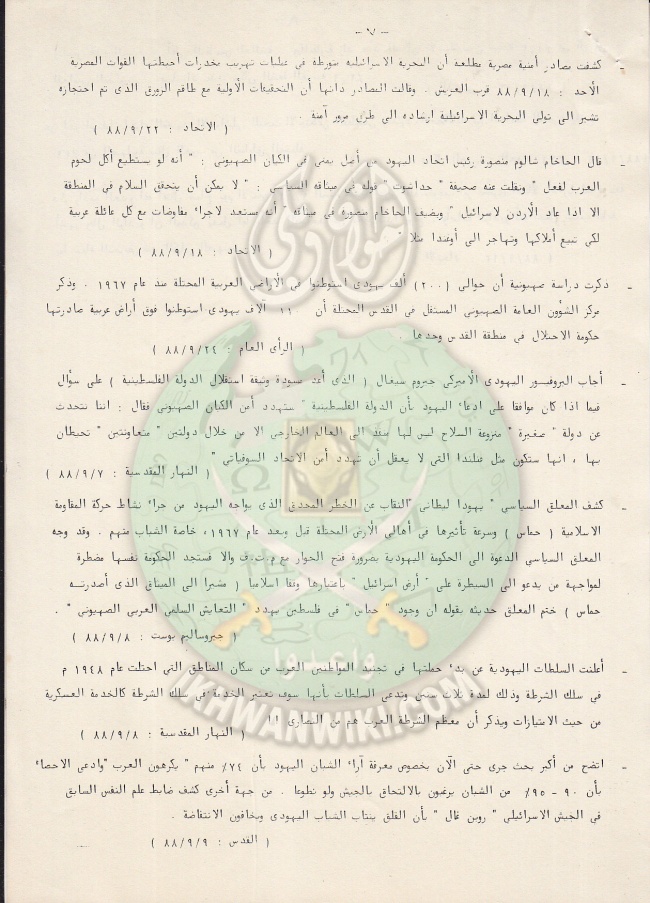 - ٧ -
- كشفت مصادر أمنية مصرية مطلعة أن البحرية الاسرائيلية متورطة في عمليات تهريب مخدرات أحبطتها القوات المصرية
الأحد : ٨٨/٩/١٨ قرب العريش . وقالت المصادر ذاتها أن التحقيقات الأولية مع طاقم الزورق الذى تم احتجازه
تشير الى تولى البحرية الاسرائيلية ارشاده الى طرق مرور آمنة .
( الاتحاد : ٨٨/٩/٢٢ )
- قال الحاخام شالوم منصورة رئيس اتحاد اليهود من أصل يمني في الكيان الصهيوني : " أنه لو يستطيع أكل لحوم
العرب لفعل " ونقلت عنه صحيفة " حداشوت " قوله في ميثاقه السياسي : " لا يمكن أن يتحقق السلام في المنطقة
الا اذا عاد الأردن لاسرائيل " ويضيف الحاخام منصورة في ميثاقه " أنه مستعد لاجراء مفاوضات مع كل عائلة عربية
لكي تبيع أملاكها وتهاجر الى أوغندا مثلا "
( الاتحاد : ٨٨/٩/١٨ )
- ذكرت دراسة صهيونية أن حوالي (٢٠٠) ألف يهودى استوطنوا في الأراضي العربية المحتلة منذ عام ١٩٦٧ . وذكر
مركز الشؤون العامة الصهيوني المستقل في القدس المحتلة أن ١١ آلاف يهودى استوطنوا فوق أراض عربية صادرتها
حكومة الاحتلال في منطقة القدس وحدها .
( الرأى العام : ٨٨/٩/٢٤ )
- أجاب البروفيسور اليهودى الأمركي جيروم سيغال ( الذى أعد مسودة وثيقة استقلال الدولة الفلسطينية ) على سؤال
فيما اذا كان موافقا على ادعاء اليهود بأن الدولة الفلسطينية " ستهدد أمن الكيان الصهيوني فقال : اننا نتحدث
عن دولة " صغيرة " منزوعة السلاح ليس لها منفذ الى العالم الخارجي الا من خلال دولتين " متعاونتين " تحيطان
بها ، انها ستكون مثل فنلندا التي لا يعقل أن تهدد أمن الاتحاد السوفياتي "
( النهار المقدسية : ٨٨/٩/٧ )
- كشف المعلق السياسي " يهودا ليطاني " النقاب عن الخطر المحدق الذى يواجه اليهود من جراء نشاط حركة المقاومة
الاسلامية ( حماس ) وسرعة تأثيرها في أهالي الأرض المحتلة قبل وبعد عام ١٩٦٧، خاصة الشباب منهم . وقد وجه
المعلق السياسي الدعوة الى الحكومة اليهودية بضرورة فتح الحوار مع م.ت.ف والا فستجد الحكومة نفسها مضطرة
لمواجهة من يدعو الى السيطرة على " أرض اسرائيل " باعتبارها وقفا اسلاميا ( مشيرا الى الميثاق الذى أصدرته
حماس ) ختم المعلق حديثه بقوله ان وجود " حماس " في فلسطين يهدد " التعايش السلمي العربي الصهيوني " .
( جيروساليم بوست : ٨٨/٩/٨ )
- أعلنت السلطات اليهودية عن بدء حملتها في تجنيد المواطنين العرب من سكان المناطق التي احتلت عام ١٩٤٨ م
في سلك الشرطة وذلك لمدة ثلاث سنين وتدعي السلطات بأنها سوف تعتبر الخدمة في سلك الشرطة كالخدمة العسكرية
من حيث الامتيازات ويذكر أن معظم الشرطة العرب هم من النصارى !!
( النهار المقدسية : ٨٨/٩/٨ )
- اتضح من أكبر بحث جرى حتى الآن بخصوص معرفة آراء الشبان اليهود بأن ٢٤٪ منهم " يكرهون العرب " وادعى الاحصاء
بأن ٩٠ - ٩٥٪ من الشبان يرغبون بالالتحاق بالجيش ولو تطوعا . من جهة أخرى كشف ضابط علم النفس السابق
في الجيش الاسرائيلي " روبن قال " بأن القلق ينتاب الشباب اليهودى ويخافون الانتفاضة .
( القدس : ٨٨/٩/٩ )
وأعدوا
IKHWANWIKI.COM